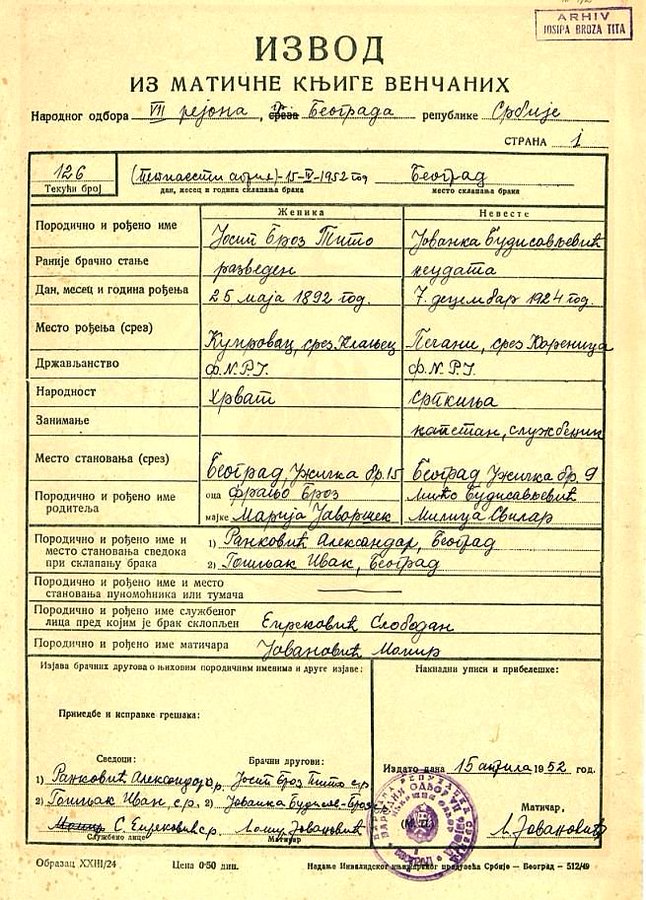 ARHIV
JOSIPA BROZA TITA
ИЗВОД
ИЗ МАТИЧНЕ КЊИГЕ ВЕНЧАНИХ
Народног одбора VII рејона, среза Београда републике Србије
СТРАНА 1
126 (Петнаести април)-15-IV-1952 год Београд
Текући број дан, месец и година склапања брака место склапања брака
Женика Невесте
Породично и рођено име Јосип Броз Тито Јованка Будисављевић
Раније брачно стање разведен неудата
Дан, месец и година рођења 25 маја 1892 год. 7. децембар 1924 год.
Место рођења (срез) Кумровац, срез Клањец Пећани, срез Кореница
Држављанство Ф.Н.Р.Ј. Ф.Н.Р.Ј.
Народност Хрват Српкиња
Занимање капетан, службеник
Место становања (срез) Београд, Ужичка бр. 15 Београд Ужичка бр. 9
Породично и рођено име родитеља оца Фрањо Броз Мићо Будисављевић
мајке Марија Јаворшек Милица Свилар
Породично и рођено име и место становања сведока при склапању брака 1) Ранковић Александар, Београд
2) Гошњак Иван, Београд
Породично и рођено име и место становања пуномоћника или тумача
Породично и рођено име службеног лица пред којим је брак склопљен Слободан
Породично и рођено име матичара Јовановић Момир
Изјава брачних другова о њиховим породичним именима и друге изјаве: Накнадни уписи и прибелешке:
Примедбе и исправке грешака:
Сведоци: Брачни другови:
1) Ранковић Александар с.р. Јосип Броз Тито с.р.
2) Гошњак Иван, с.р. Јованка Будисав-Броз
Момир С. с.р. Момир Јовановић
Службено лице Матичар
Издато дана 15 априла 1952 год.
(М. П.) Матичар,
М. Јовановић
Образац XXIII/24 Цена 0·50 дин. Издање Инвалидског књижарског предузећа Србије — Београд — 512/49